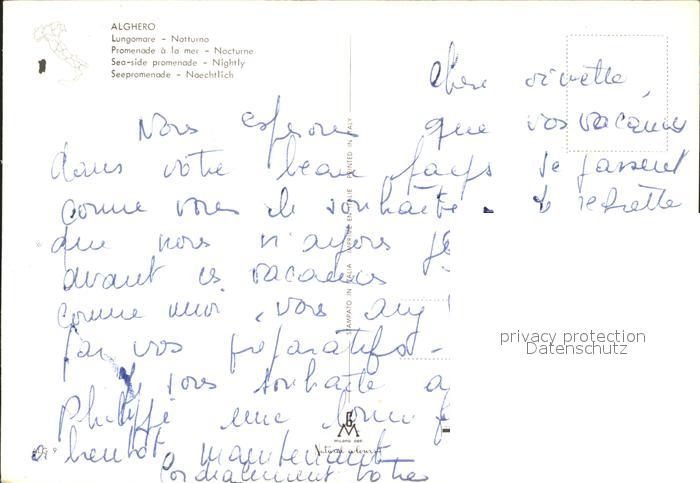 ALGHERO
Lungomare – Notturno
Promenade à la mer – Nocturne
Sea-side promenade – Nightly
Seepromenade – Naechtlich
STAMPATO IN ITALIA IMPRIMÉ EN ITALIE PRINTED IN ITALY
Chère Ginette,
Nous espérons que vos vacances
dans votre beau pays se passent
comme vous le souhaitez je regrette
que nous n'ayons
avant ces vacances
comme moi, vous
par vos préparatifs -
vous souhaite
Philippe une bonne
a bientôt maintenant
Cordialement votre
MILANO
Natural colours
privacy protection
Datenschutz